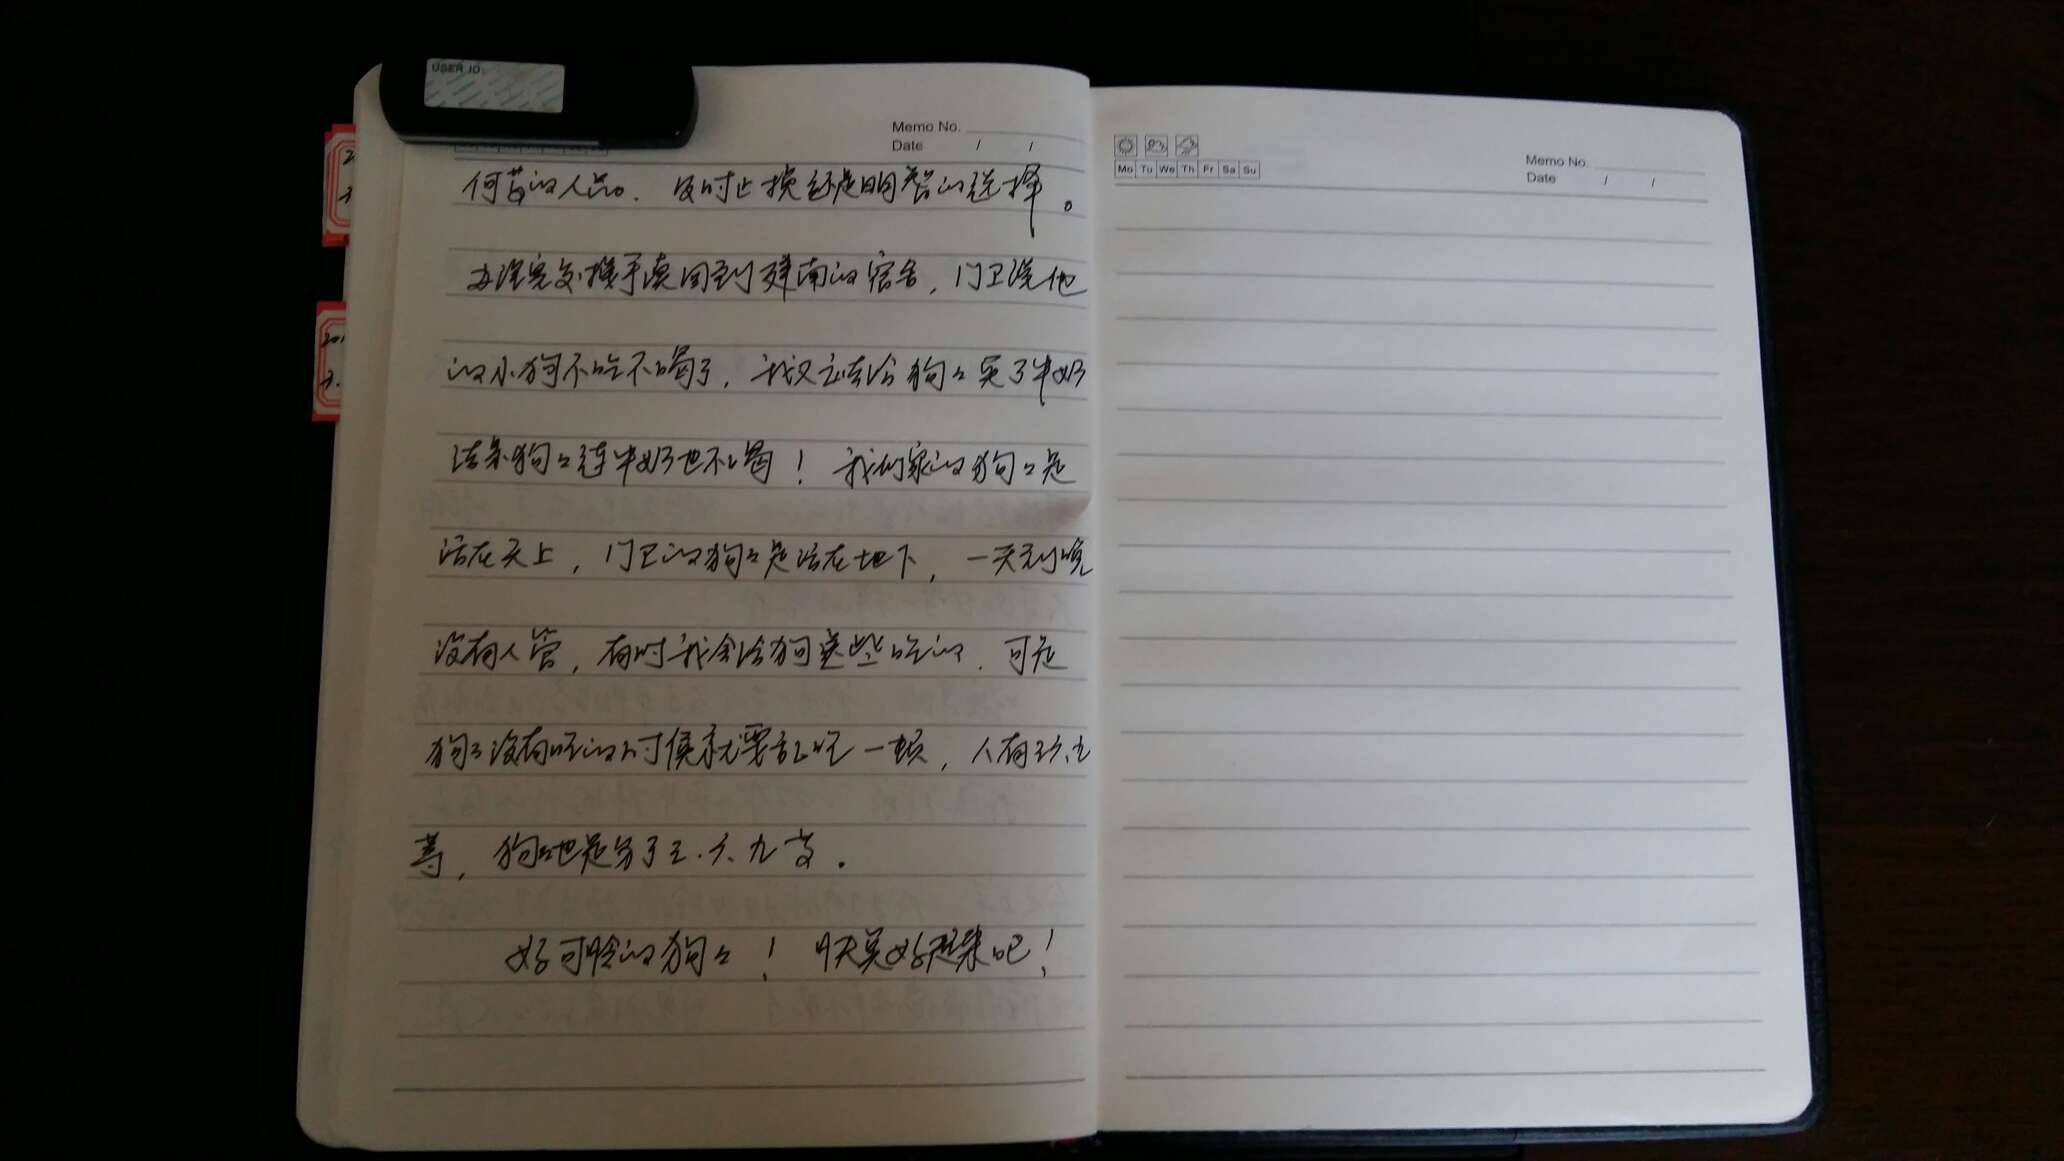 USER ID:
Memo No.
Date / /
何等的人品. 及时止损还是明智的选择。
办理完交接手续回到建南的宿舍, 门卫说他
的小狗不吃不喝了, 我又去给狗々买了牛奶
这条狗々连牛奶也不喝! 我们家的狗々是
活在天上, 门卫的狗々是活在地下, 一天到晚
没有人管, 有时我会给狗买些吃的. 可是
狗々没有吃的时候就要乱吃一顿, 人有三六九
等, 狗々也是分了三.六.九等.
好可怜的狗々! 快些好起来吧!
Mo Tu We Th Fr Sa Su
Memo No.
Date / /